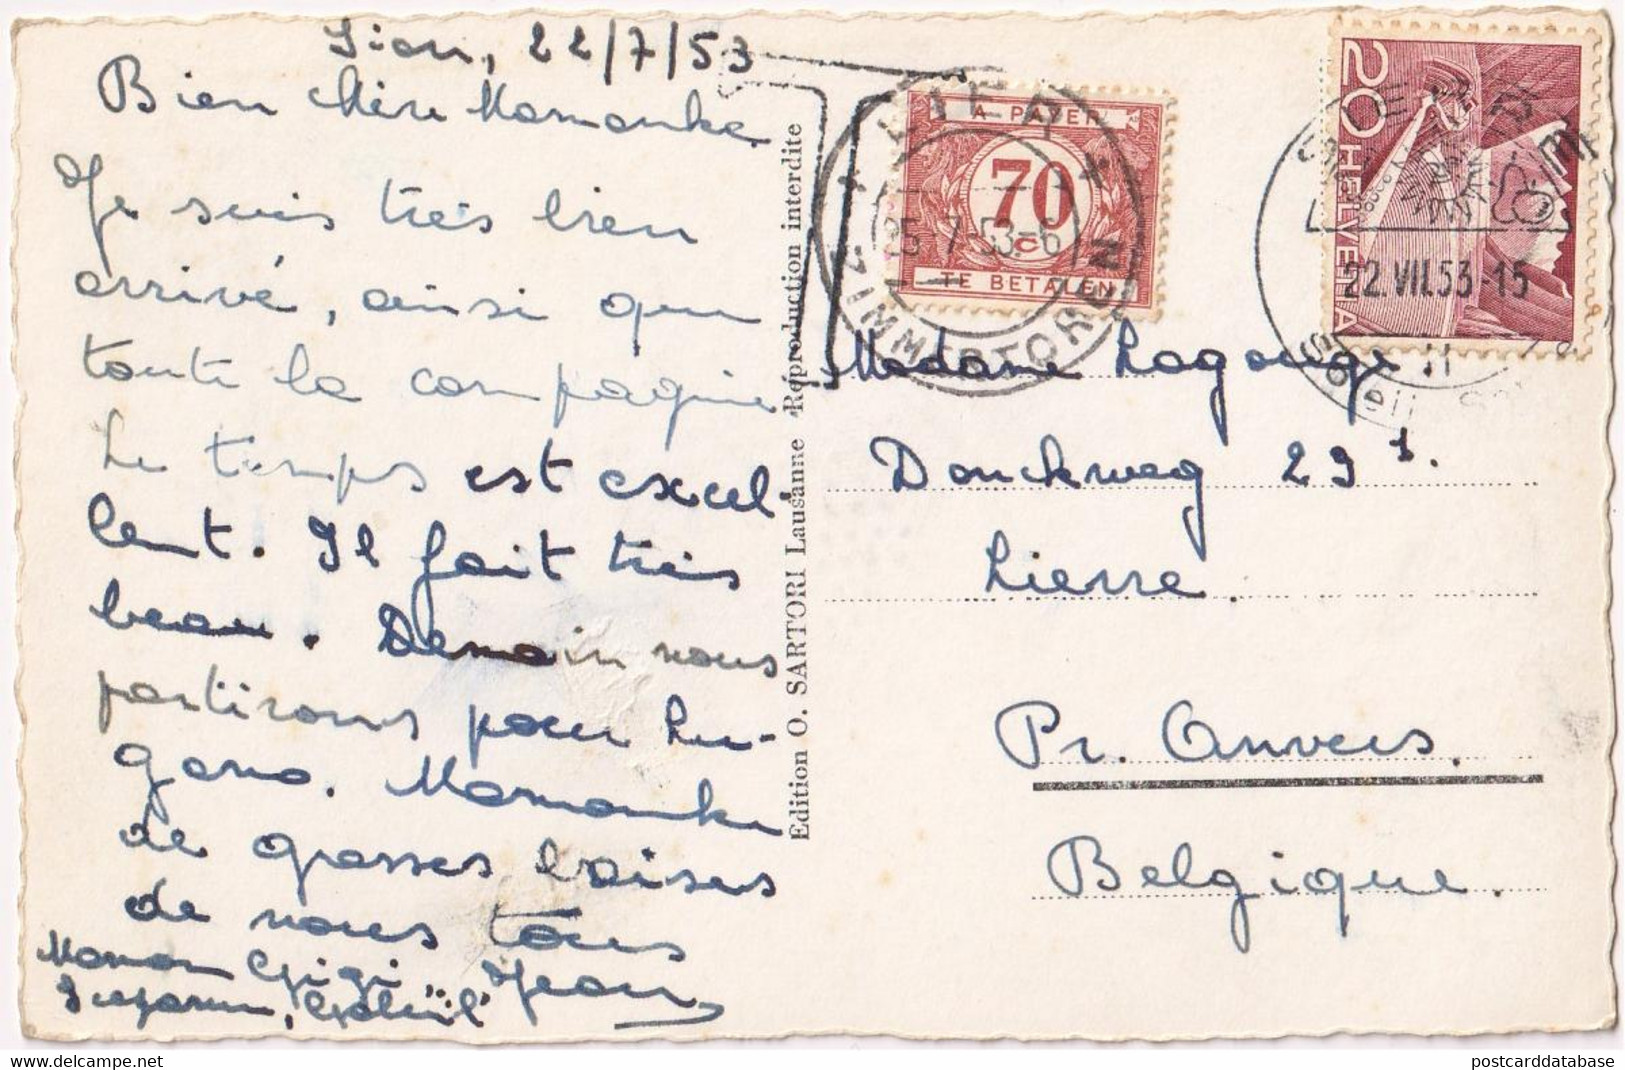 Sion, 22/7/53
Bien chère Mamanke
Je suis très bien
arrivé, ainsi que
toute la compagnie
Le temps est excel-
lent. Il fait très
beau. Demain nous
partirons pour Lu-
gano. Mamanke
de grosses baises
de nous tous
Maman Gigi Jean
Edition O. SARTORI Lausanne Reproduction interdite
LIER
A PAYER
70
C
TE BETALEN
25-7-53-6
ZIMMERTOREN
20 HELVETIA
22.VII.53-15
Madame Lagauge
Donckweg 29
Lierre.
Pr. Anvers.
Belgique.
postcarddatabase